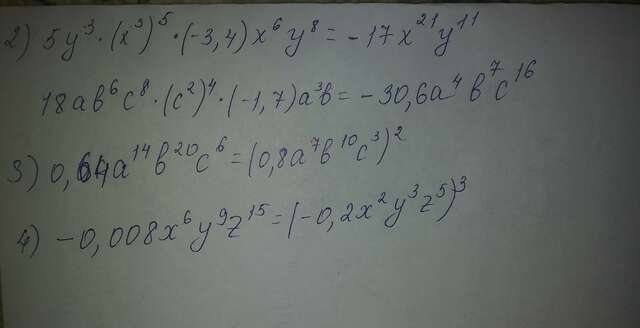 2) 5y³·(x³)⁵·(-3,4)x⁶y⁸=-17x²¹y¹¹
18ав⁶с⁸·(с²)⁴·(-1,7)а³в=-30,6а⁴в⁷с¹⁶
3) 0,64а¹⁴в²⁰с⁶=(0,8а⁷в¹⁰с³)²
4) -0,008x⁶y⁹z¹⁵=(-0,2x²y³z⁵)³